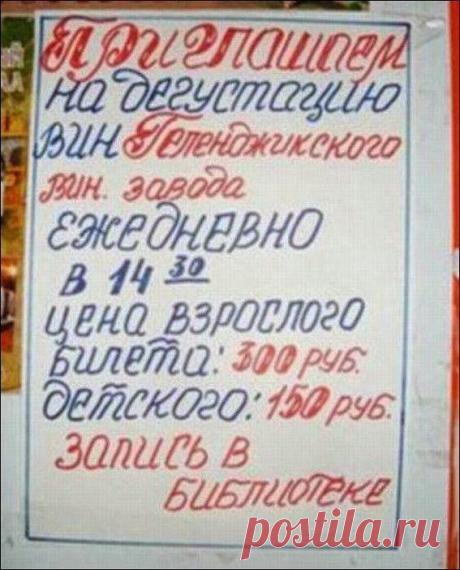 Приглашаем
на дегустацию
вин Геленджикского
вин. завода
ежедневно
в 14 30
цена взрослого
билета: 300 руб.
детского: 150 руб.
запись в
библиотеке
postila.ru